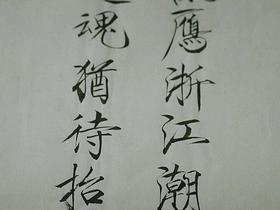 應浙江潮
魂猶待招